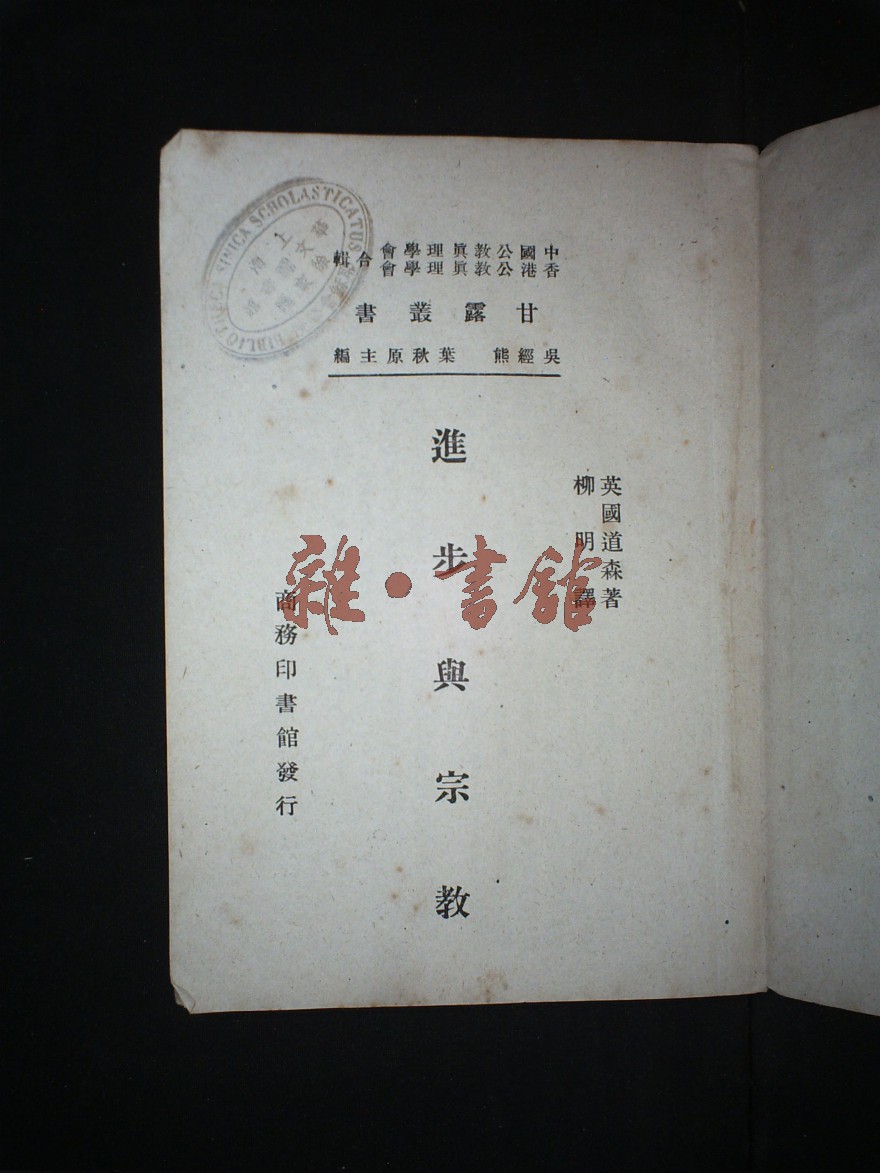 中國公教眞理學會
香港公教眞理學會
合輯
甘露叢書
吳經熊 葉秋原主編
英國道森著
柳明譯
進步與宗教
商務印書館發行
雜·書館
SINICA SCHOLASTICATUS